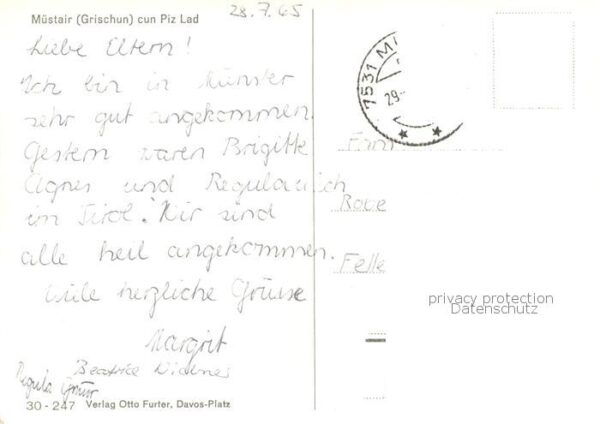 Müstair (Grischun) cun Piz Lad
28.7.65
Liebe Eltern!
Ich bin in Münster
sehr gut angekommen.
Gestern waren Brigitte
Agnes und Regula + ich
im Tirol. Wir sind
alle heil angekommen.
Viele herzliche Grüsse
Margrit
Beatrice
Regula
30 - 247 Verlag Otto Furter, Davos-Platz
7531 M
29
Fam
Felle
privacy protection
Datenschutz